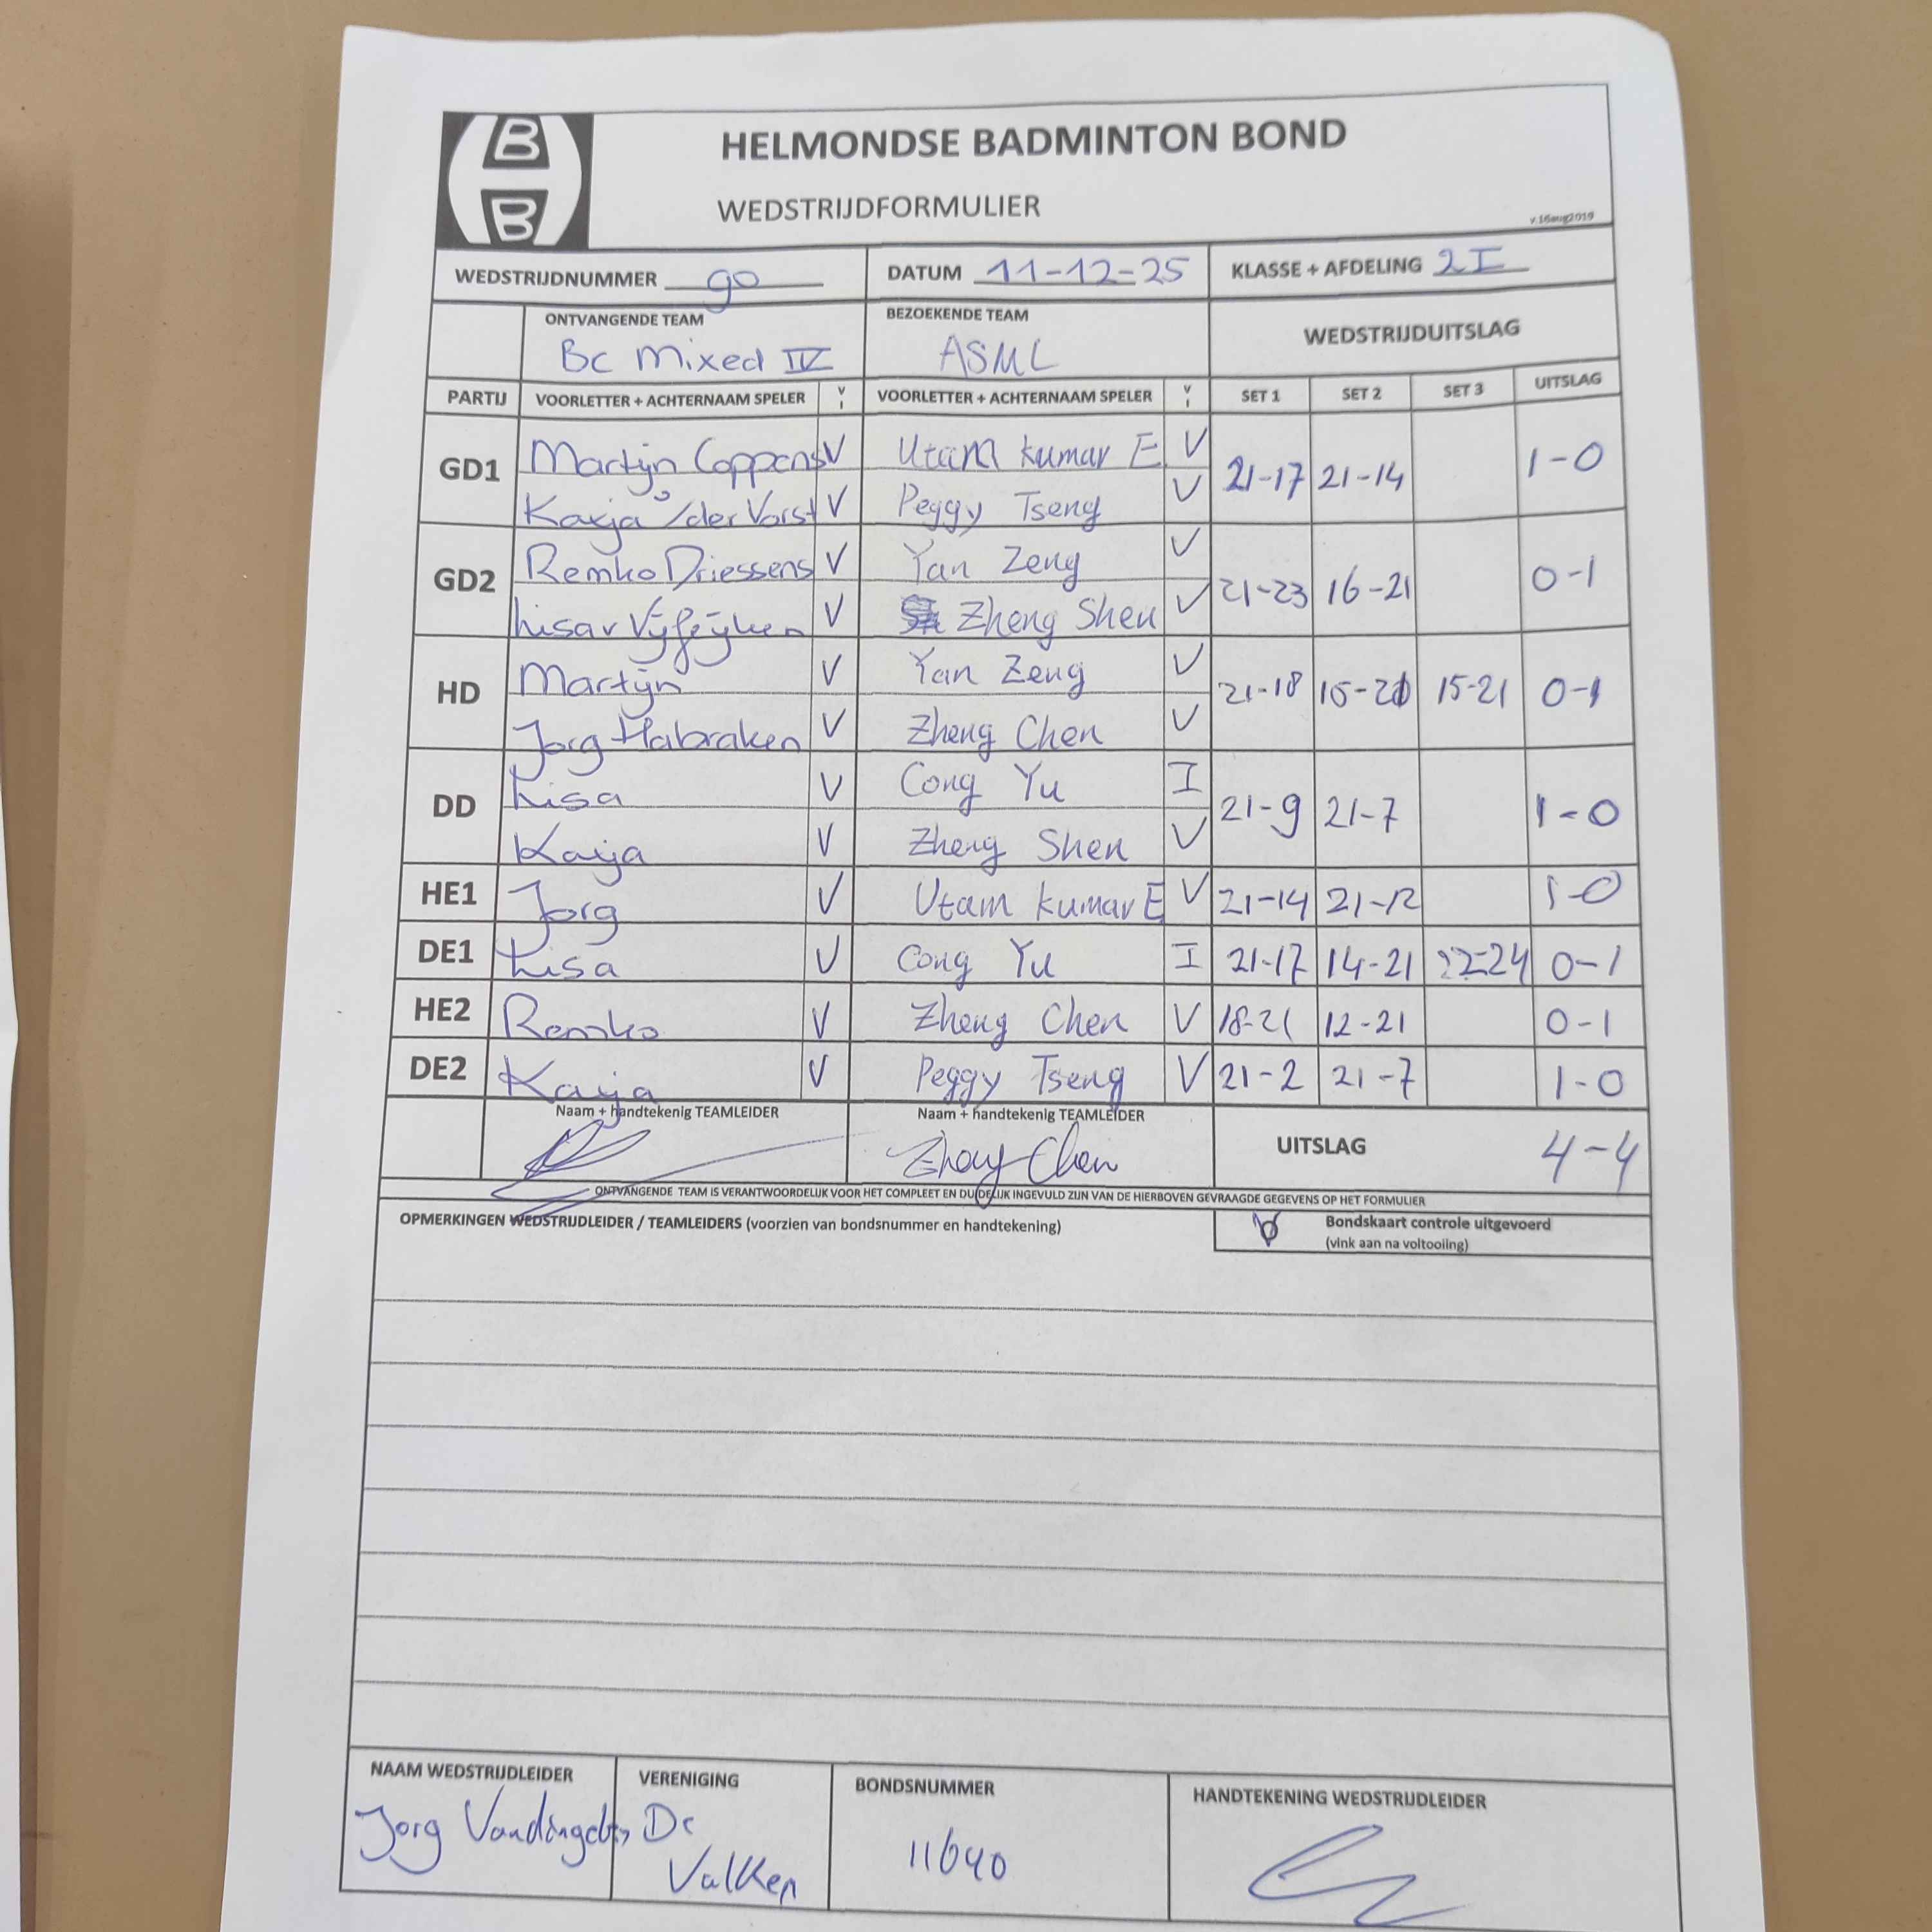 B
B
HELMONDSE BADMINTON BOND
WEDSTRIJDFORMULIER
v.16aug2019
WEDSTRIJDNUMMER 90 DATUM 11-12-25 KLASSE + AFDELING 2I
ONTVANGENDE TEAM BEZOEKENDE TEAM WEDSTRIJDUITSLAG
BC Mixed IV ASML
PARTIJ VOORLETTER + ACHTERNAAM SPELER V I VOORLETTER + ACHTERNAAM SPELER V I SET 1 SET 2 SET 3 UITSLAG
GD1 Martijn Coppens V Utam kumar E V 21-17 21-14 1-0
Kayja v/der Vorst V Peggy Tseng V
GD2 Remko Driessens V Yan Zeng V 21-23 16-21 0-1
Lisa v V Zheng Shen V
HD Martijn V Yan Zeng V 21-18 15-21 15-21 0-1
Jorg Habraken V Zheng Chen V
DD Lisa V Cong Yu I 21-9 21-7 1-0
Kayja V Zheng Shen V
HE1 Jorg V Utam kumar E V 21-14 21-12 1-0
DE1 Lisa V Cong Yu I 21-17 14-21 22-24 0-1
HE2 Remko V Zheng Chen V 18-21 12-21 0-1
DE2 Kayja V Peggy Tseng V 21-2 21-7 1-0
Naam + handtekenig TEAMLEIDER Naam + handtekenig TEAMLEIDER
Zheng Chen UITSLAG 4-4
ONTVANGENDE TEAM IS VERANTWOORDELIJK VOOR HET COMPLEET EN DUIDELIJK INGEVULD ZIJN VAN DE HIERBOVEN GEVRAAGDE GEGEVENS OP HET FORMULIER
OPMERKINGEN WEDSTRIJDLEIDER / TEAMLEIDERS (voorzien van bondsnummer en handtekening) Bondskaart controle uitgevoerd
(vink aan na voltooiing)
NAAM WEDSTRIJDLEIDER VERENIGING BONDSNUMMER HANDTEKENING WEDSTRIJDLEIDER
Jorg De
Valken 11640